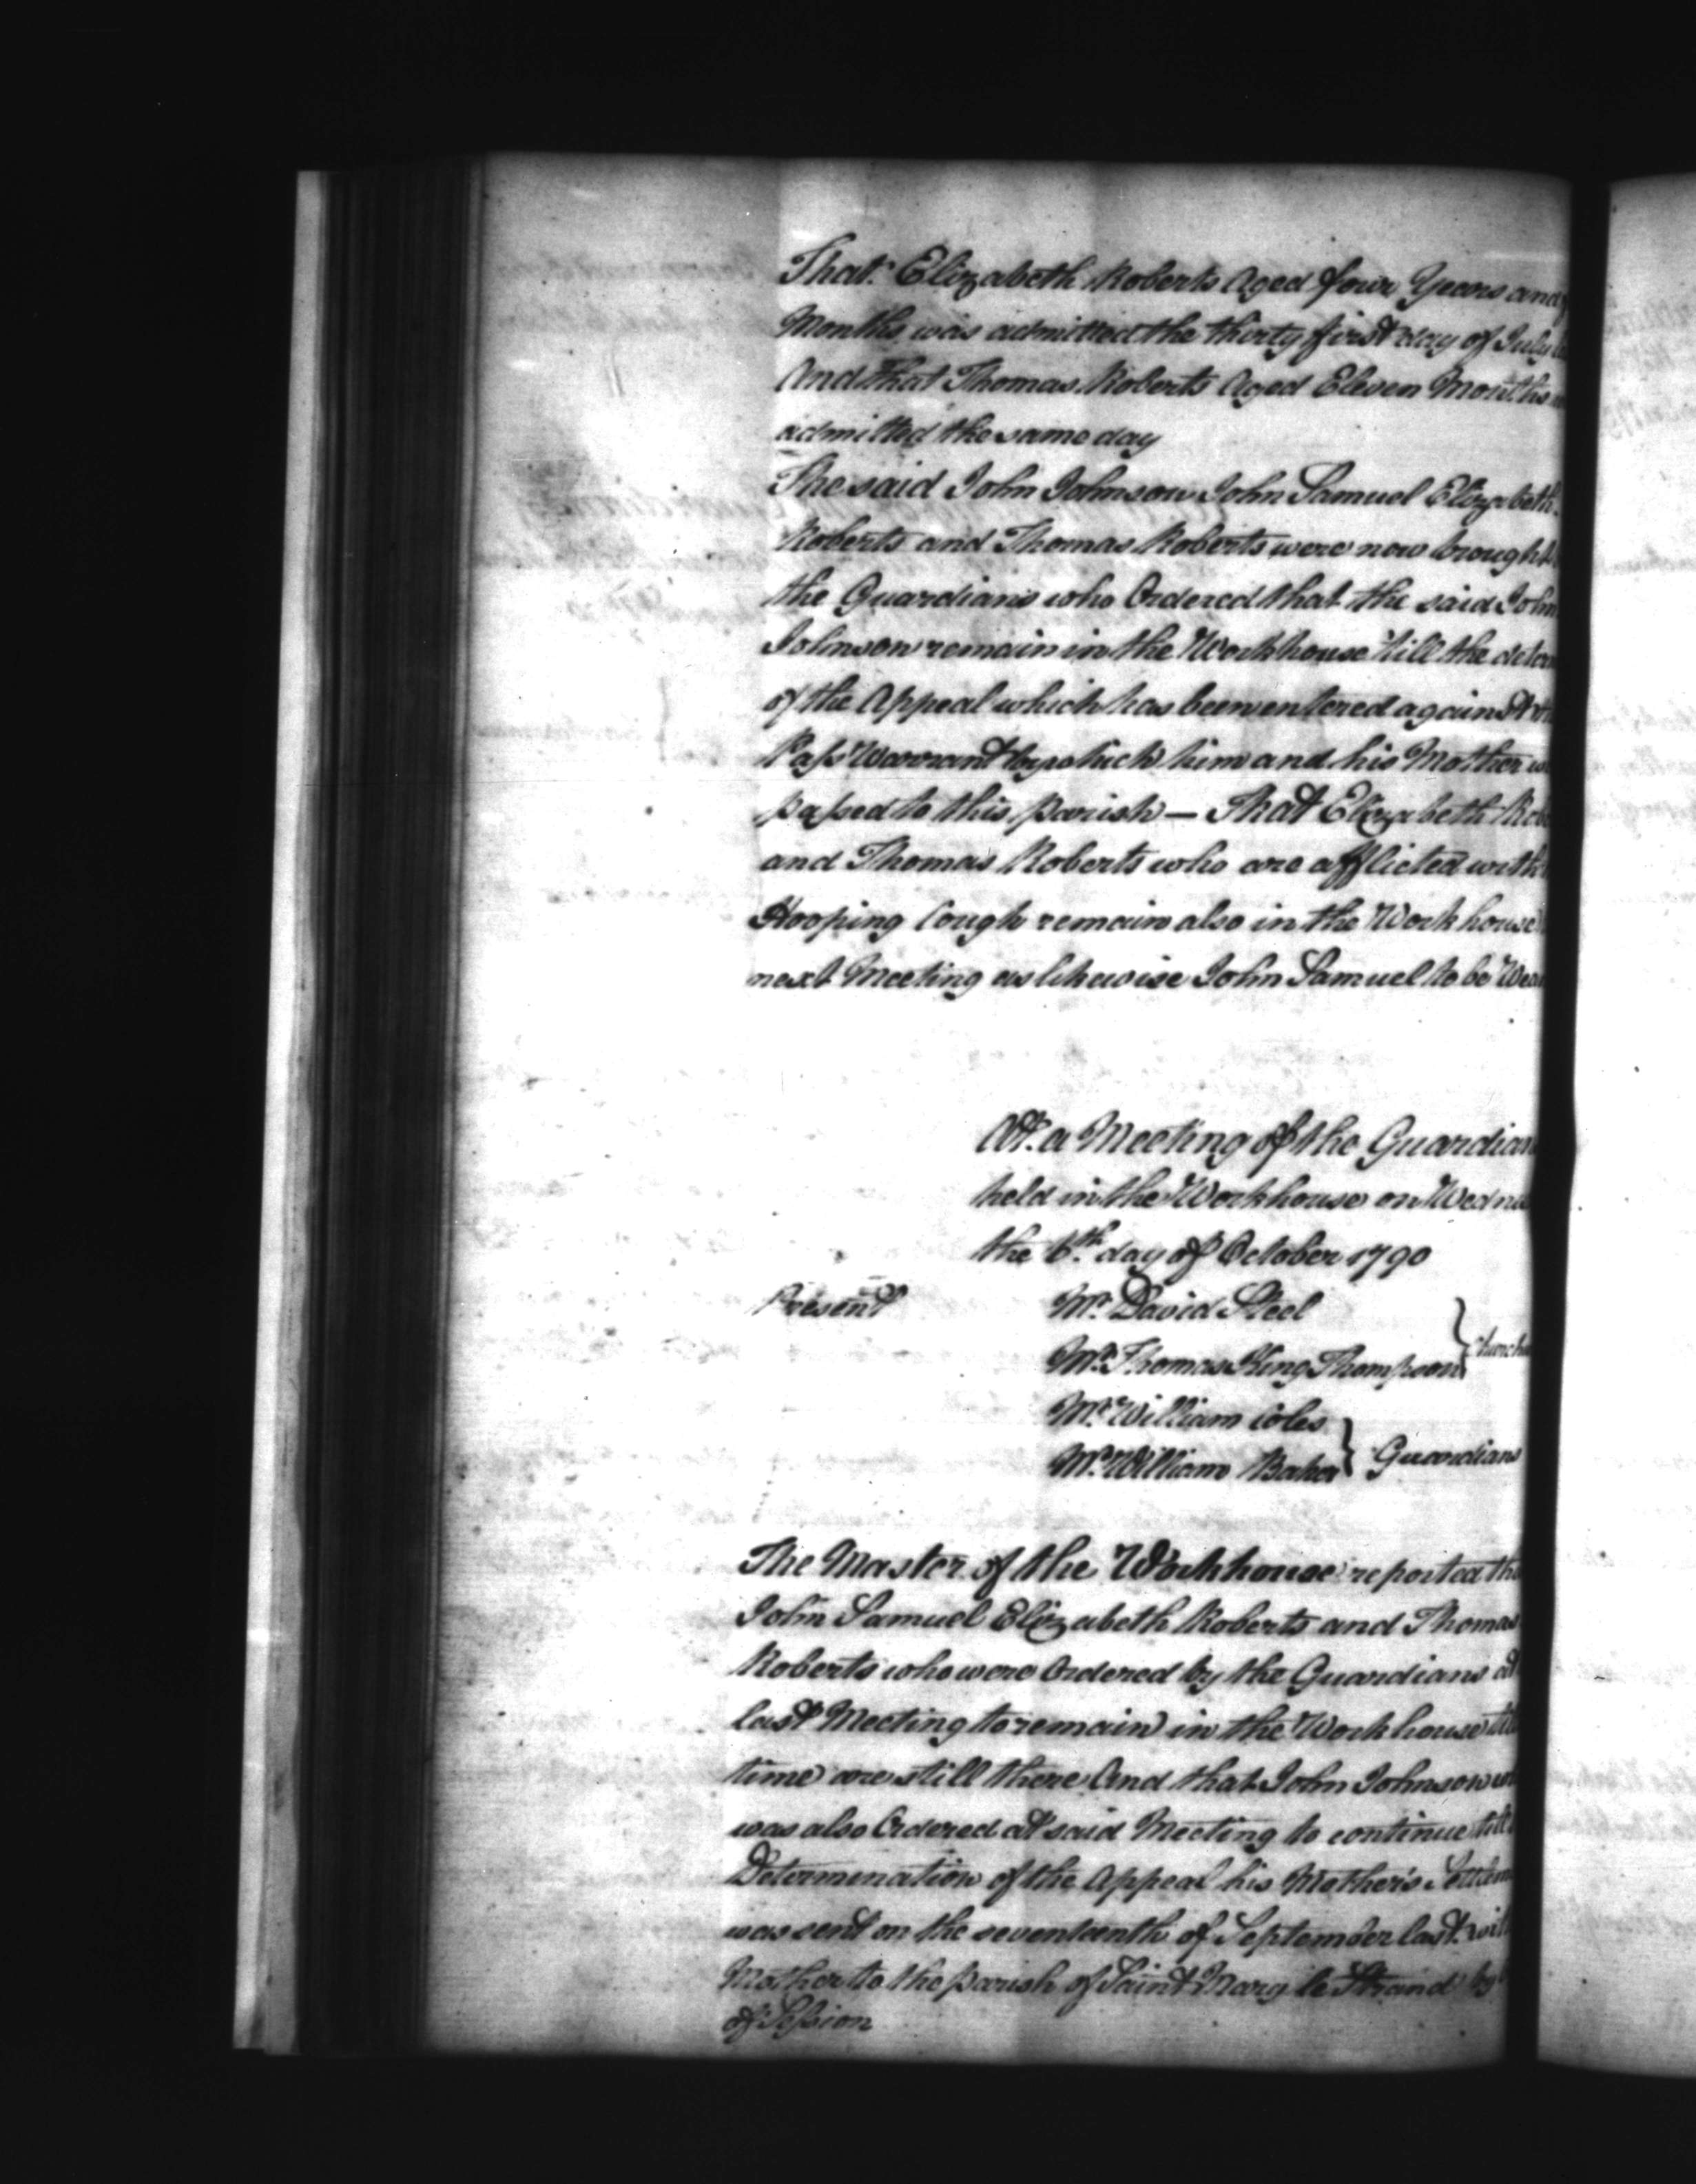 That Elizabeth Roberts Aged four Years and
Months was admitted the thirty first day of July
And that Thomas Roberts Aged Eleven Months
admitted the same day
The said John Johnson John Samuel Elizabeth
Roberts and Thomas Roberts were now brought
the Guardians who Ordered that the said John
Johnson remain in the Workhouse 'till the deter
of the Appeal which has been entered against
Pass Warrant by which him and his Mother
passed to this parish — That Elizabeth Rob
and Thomas Roberts who are afflicted with
Hooping Cough remain also in the Workhouse
next Meeting as likewise John Samuel to be Wea
At a Meeting of the Guardian
held in the Workhouse on Wednes
the 6th day of October 1790
Present
Mr. David Steel
Mr. Thomas King Thompson } Churchw
Mr. William Coles
Mr. William Baker } Guardians
The Master of the Workhouse reported tha
John Samuel Elizabeth Roberts and Thomas
Roberts who were Ordered by the Guardians at
last Meeting to remain in the Workhouse
time are still there And that John Johnson
was also Ordered at said Meeting to continue till
Determination of the Appeal his Mother's Settlem
was sent on the seventeenth of September last
Mother to the parish of Saint Mary le Strand by
of Session